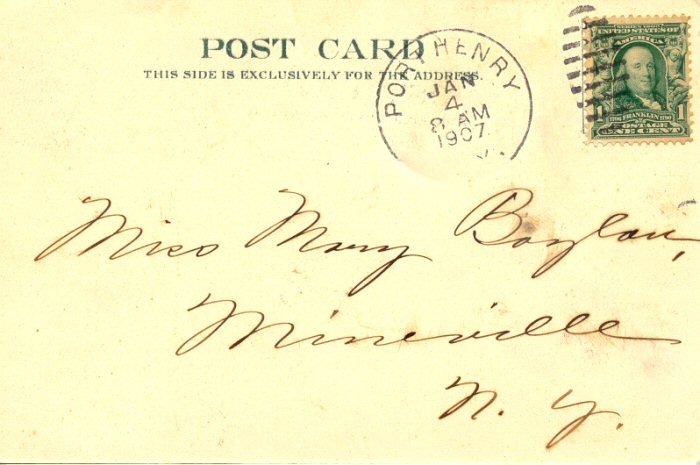 POST CARD
THIS SIDE IS EXCLUSIVELY FOR THE ADDRESS.
PORT HENRY
JAN
4
8 AM
1907
SERIES 1902
UNITED STATES OF
AMERICA
1 1
1706 FRANKLIN 1790
POSTAGE
ONE CENT
Miss Mary Boylan,
Mineville
N. Y.